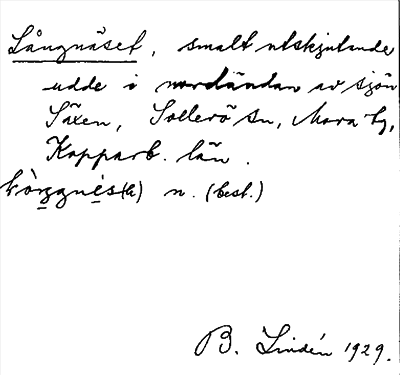 Långnäset, smalt utskjutande
udde i nordändan av sjön
Säxen, Sollerö sn, Mora tg,
Kopparb. län.
n. (best.)
B. Lindén 1929.